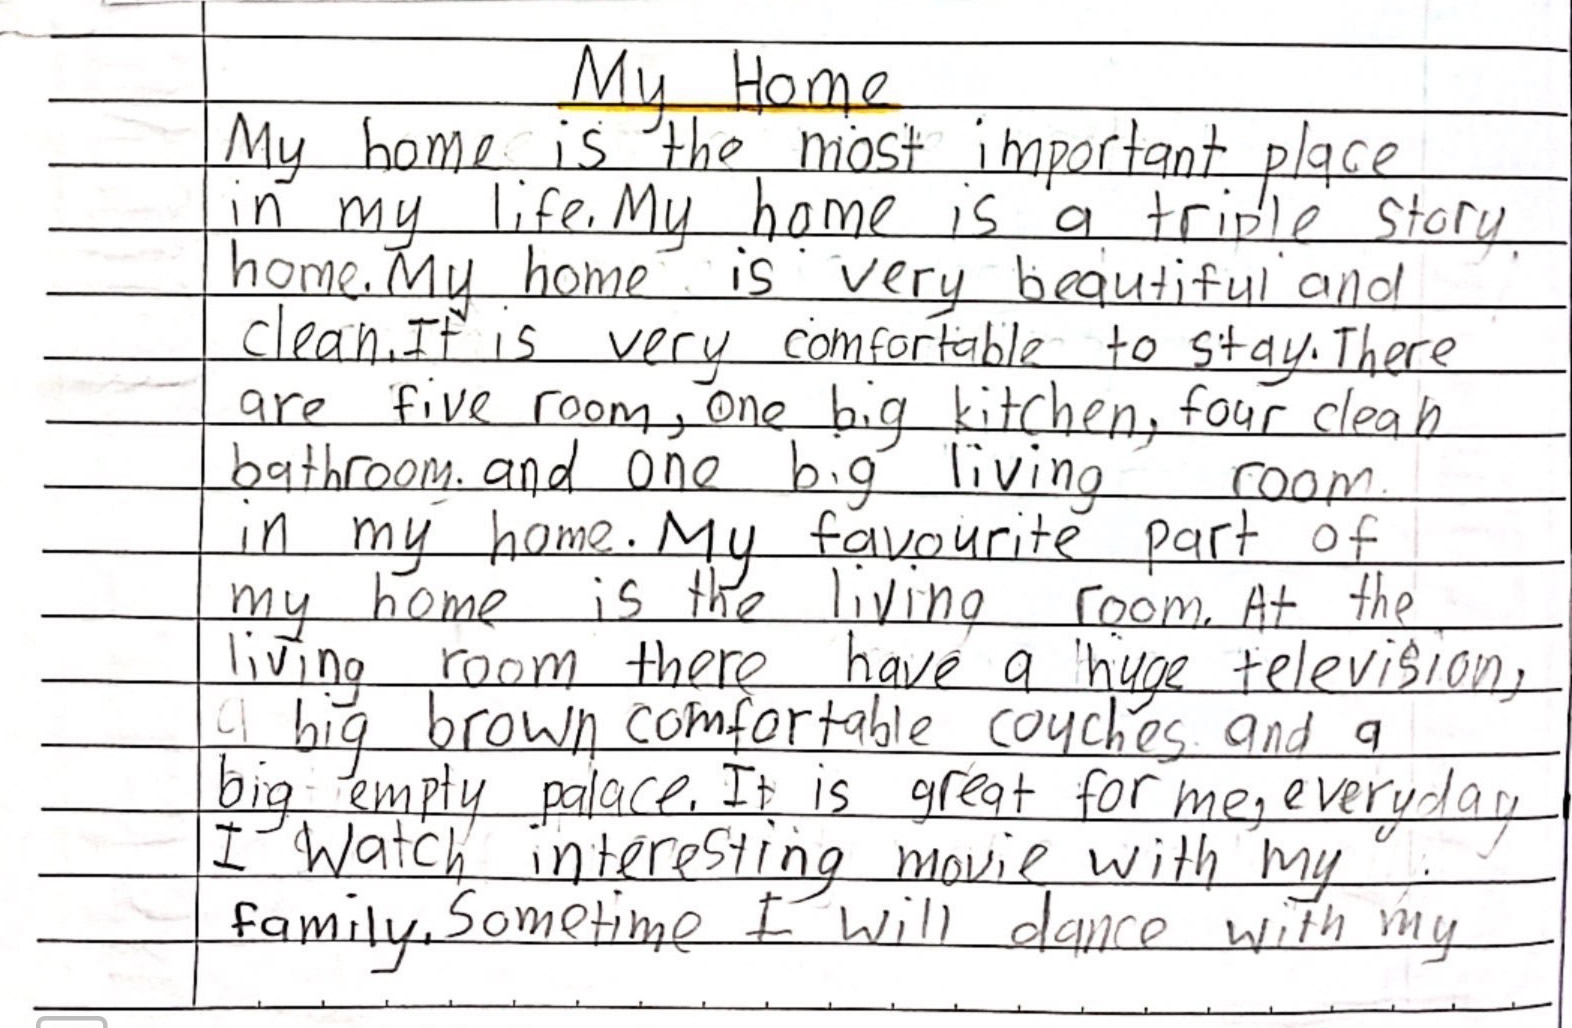 My Home
My home is the most important place
in my life. My home is a triple story
home. My home is very beautiful and
clean. It is very comfortable to stay. There
are five room, one big kitchen, four clean
bathroom. and one big living room.
in my home. My favourite part of
my home is the living room. At the
living room there have a huge television,
a big brown comfortable couches and a
big empty palace. It is great for me, everyday
I Watch interesting movie with my
family. Sometime I will dance with my